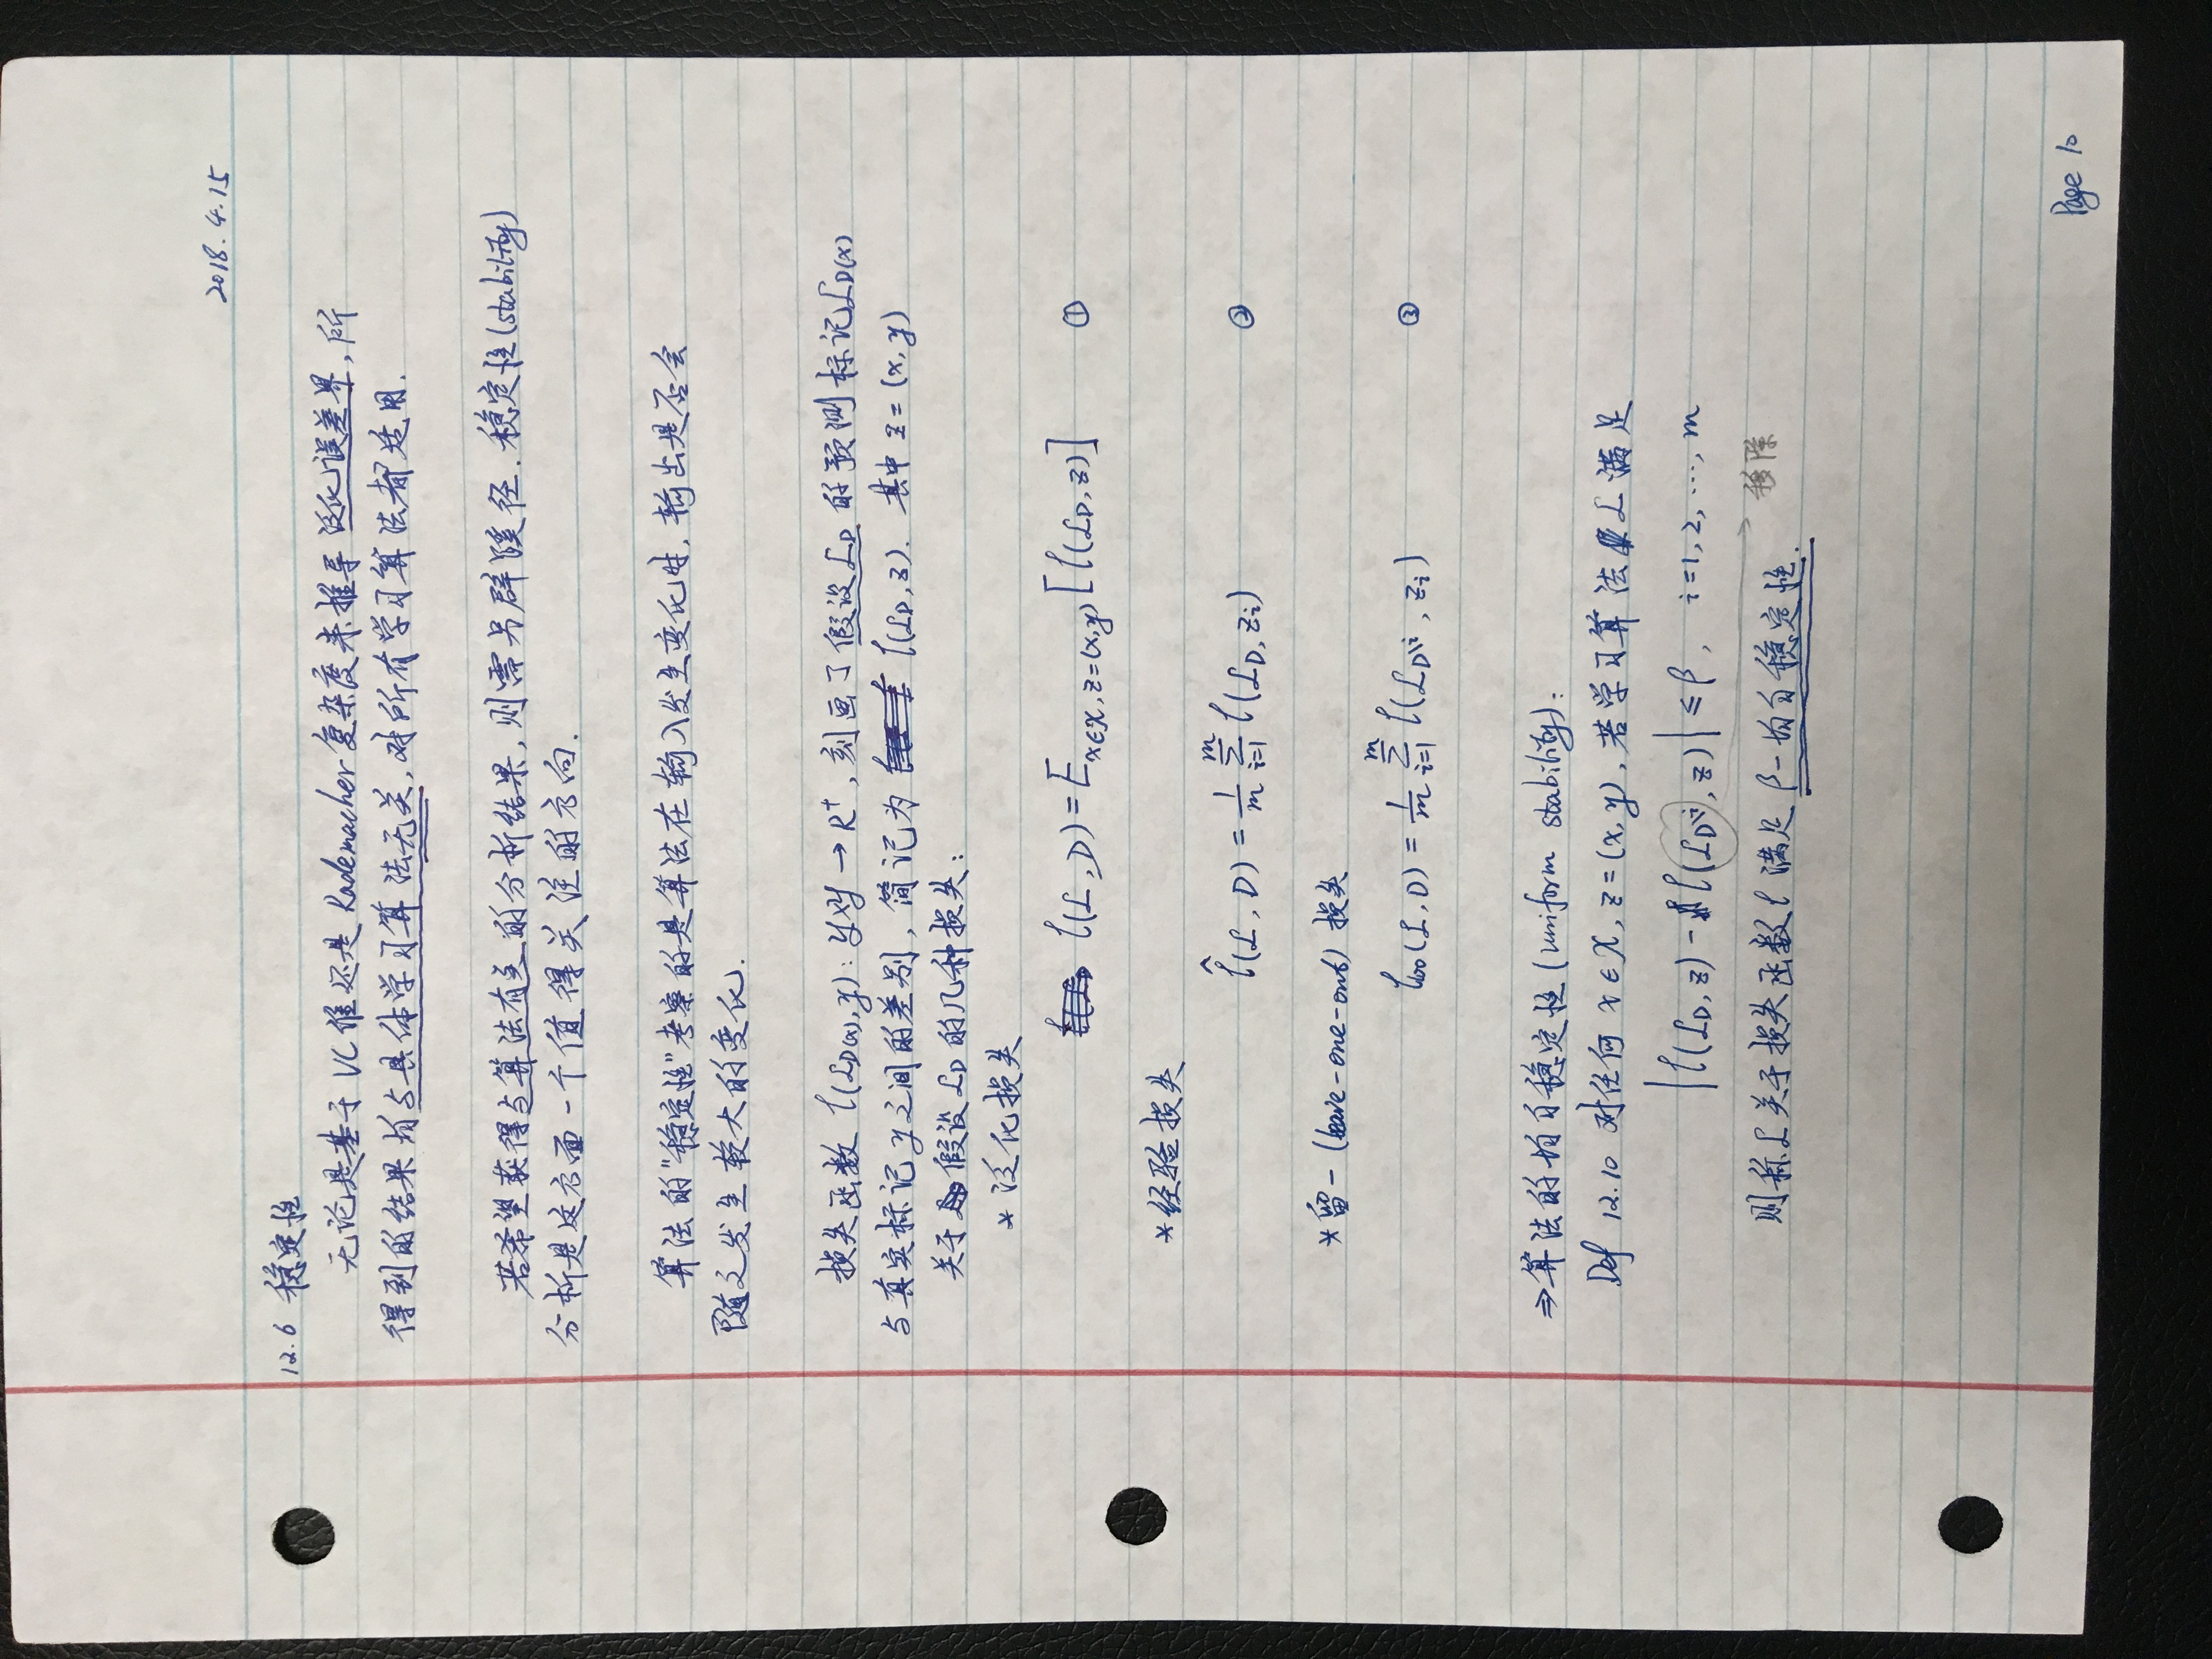 2018.4.15
12.6 稳定性
无论是基于 VC 维还是 Rademacher 复杂度来推导泛化误差界, 所
得到的结果均与具体学习算法无关, 对所有学习算法都适用.
若希望获得与算法有关的分析结果, 则需另辟蹊径. 稳定性(stability)
分析是这方面一个值得关注的方向.
算法的"稳定性"考察的是算法在输入发生变化时, 输出是否会
随之发生较大的变化.
损失函数 ℓ(𝓛_D(x), y): 𝒴×𝒴 → R⁺, 刻画了假设 𝓛_D 的预测标记 𝓛_D(x)
与真实标记 y 之间的差别, 简记为 ℓ(𝓛_D, z). 其中 z = (x, y)
关于假设 𝓛_D 的几种损失:
* 泛化损失
ℓ(𝓛, D) = E_{x∈𝒳, z=(x,y)} [ℓ(𝓛_D, z)] ①
* 经验损失
ℓ̂(𝓛, D) = 1/m ∑_{i=1}^{m} ℓ(𝓛_D, z_i) ②
* 留一 (leave-one-out) 损失
ℓ_loo(𝓛, D) = 1/m ∑_{i=1}^{m} ℓ(𝓛_{D\i}, z_i) ③
⇒ 算法的均匀稳定性 (uniform stability):
Def 12.10 对任何 x ∈ 𝒳, z = (x, y), 若学习算法 𝓛 满足
|ℓ(𝓛_D, z) - ℓ(𝓛_{D\i}, z)| ≤ β, i = 1, 2, ..., m
移除
则称 𝓛 关于损失函数 ℓ 满足 β-均匀稳定性.
Page 10